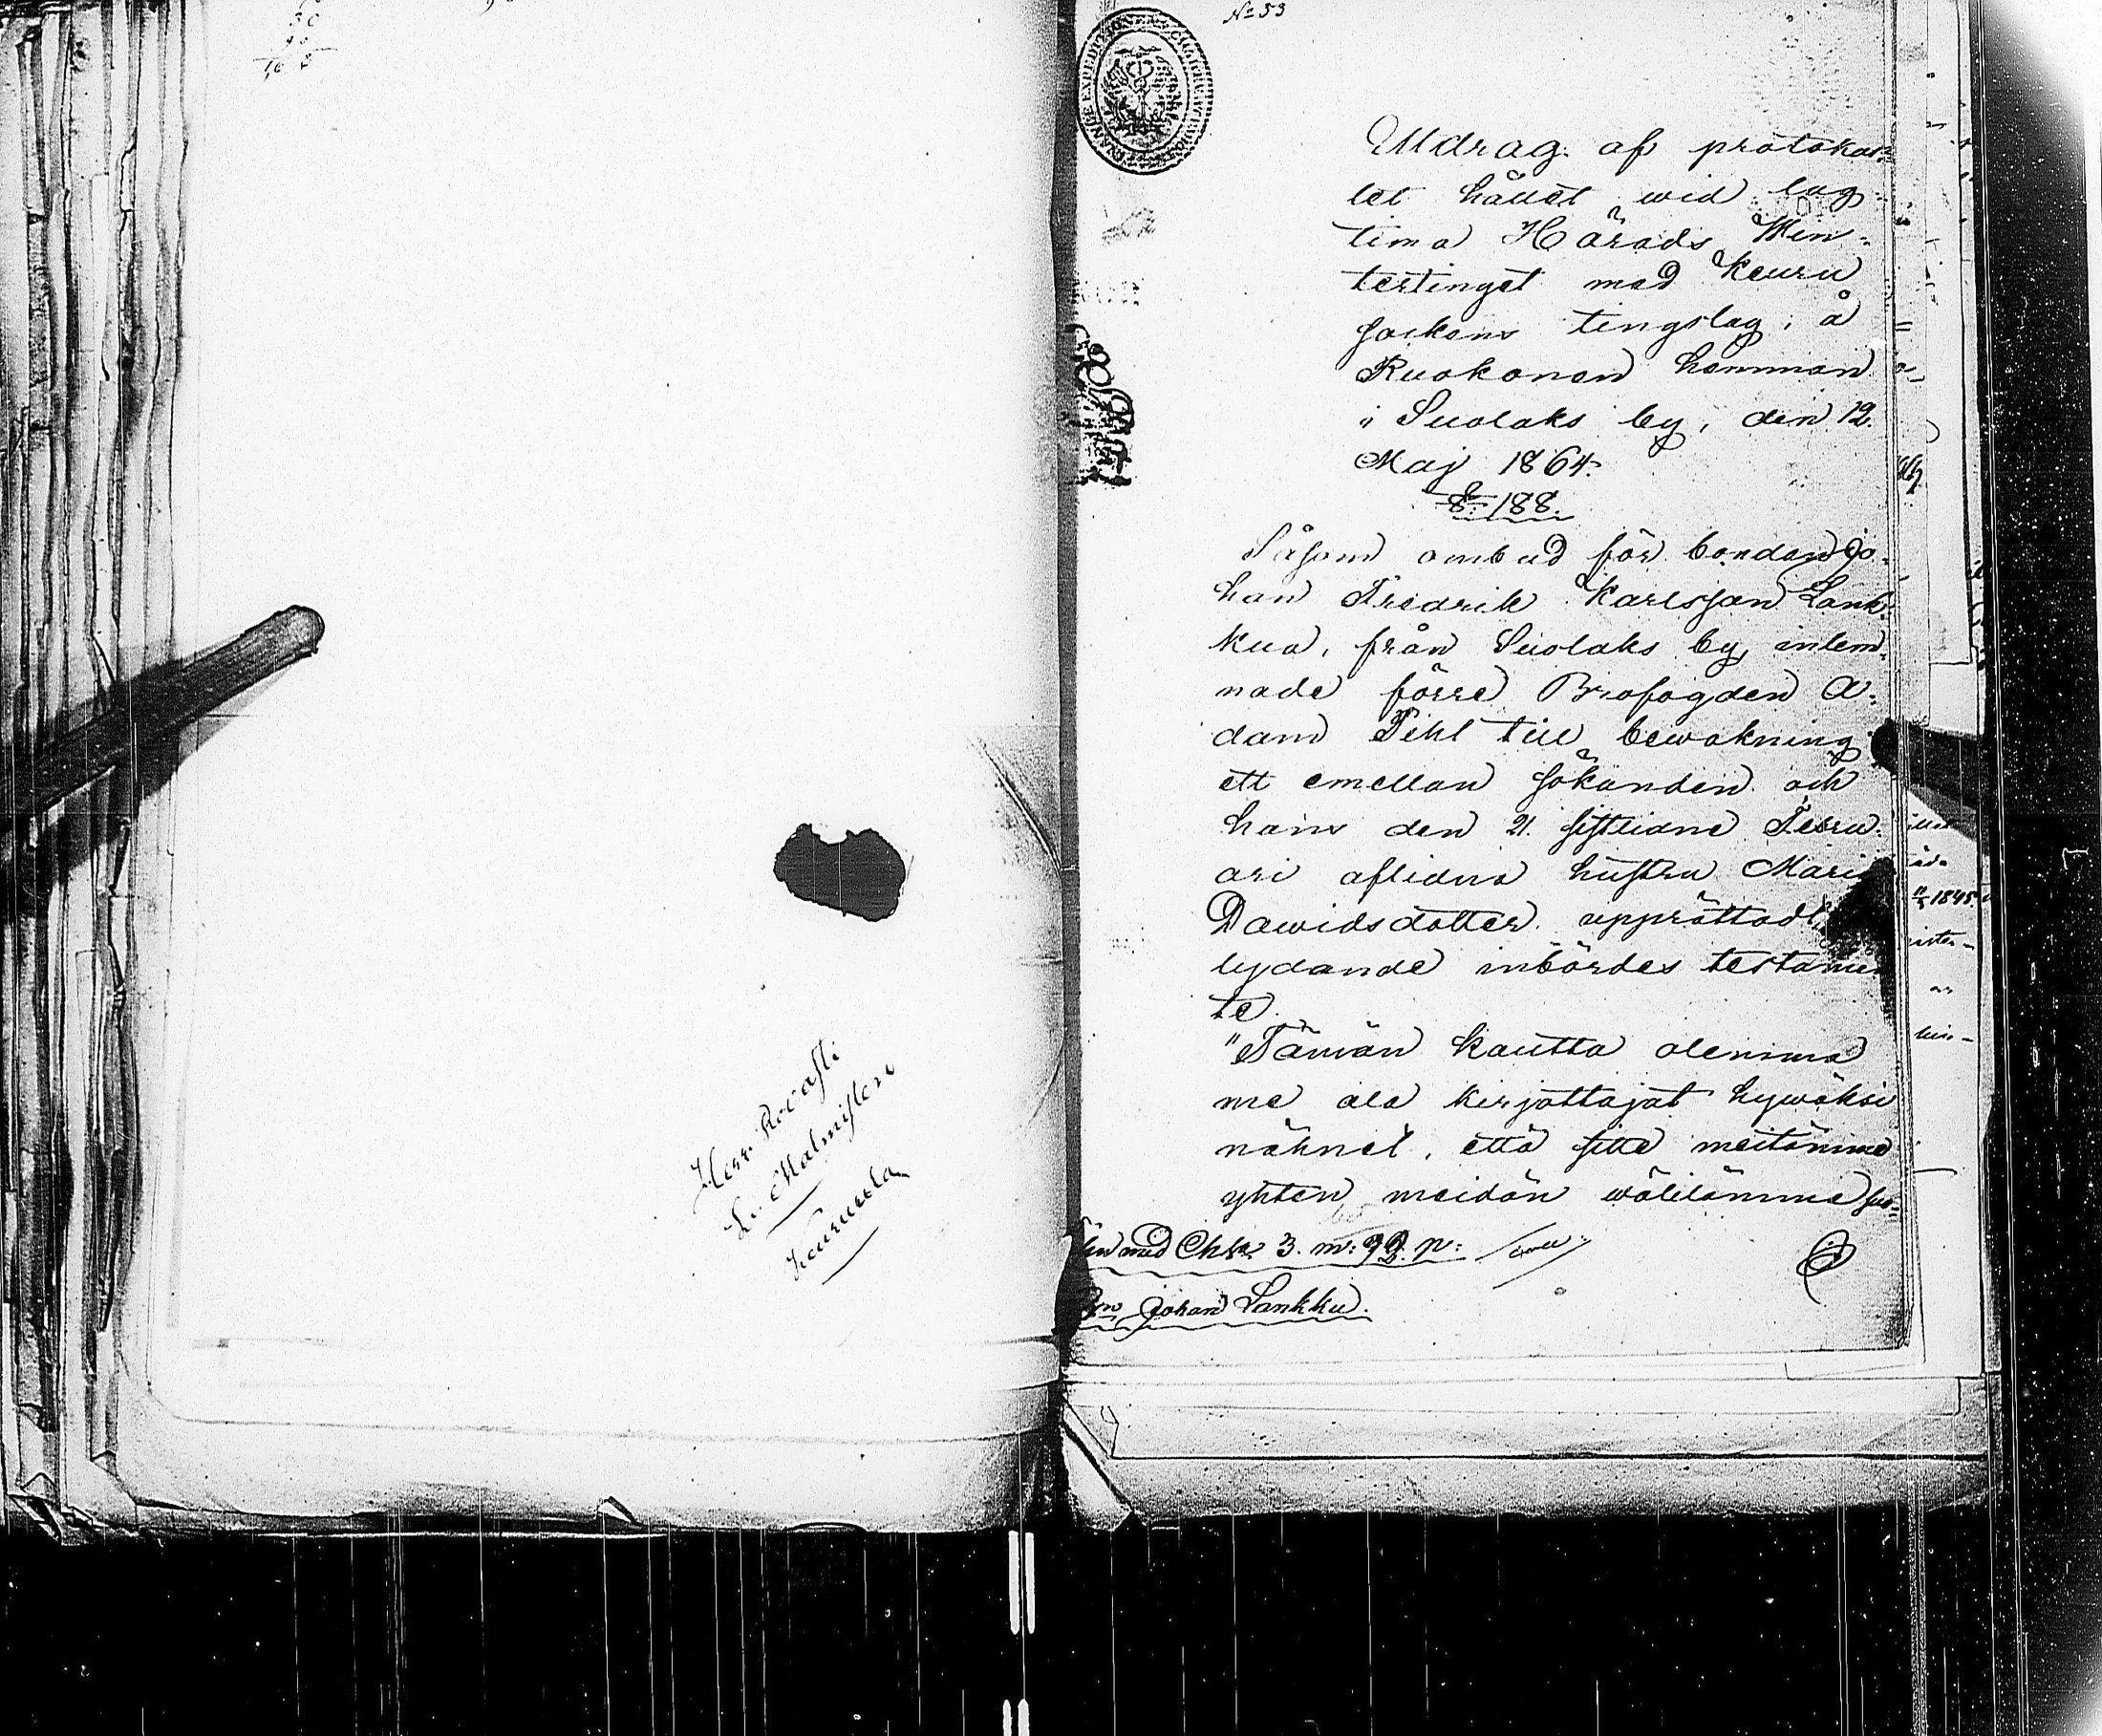 50
Herr Rovasti
L. Malmsten
Keurula
No 53
Utdrag af protokol-
let hållet wid lag-
tima Härads Win-
tertinget med Keuru
sockens tingslag, å
Ruokonen hemman
i Suolaks by, den 12
Maj 1864.
§ 188.
Såsom ombud för bonden Jo-
han Fredrik Karlsson Lank-
kua, från Suolaks by, inlem-
nade förre Brofogden A-
dam Pihl till bewakning
ett emellan sökanden och
hans den 21. sistlidne Febru-
ari aflidna hustru Maria
Dawidsdotter upprättadt
lydande inbördes testamen-
te.
"Tämän kautta olemma
me ala kirjottajat hywäksi
nähnet, että sitte meitämme
yhten meidän wälilämme suo-
med Ch. 3. m: 92 p:
Johan Lankku.